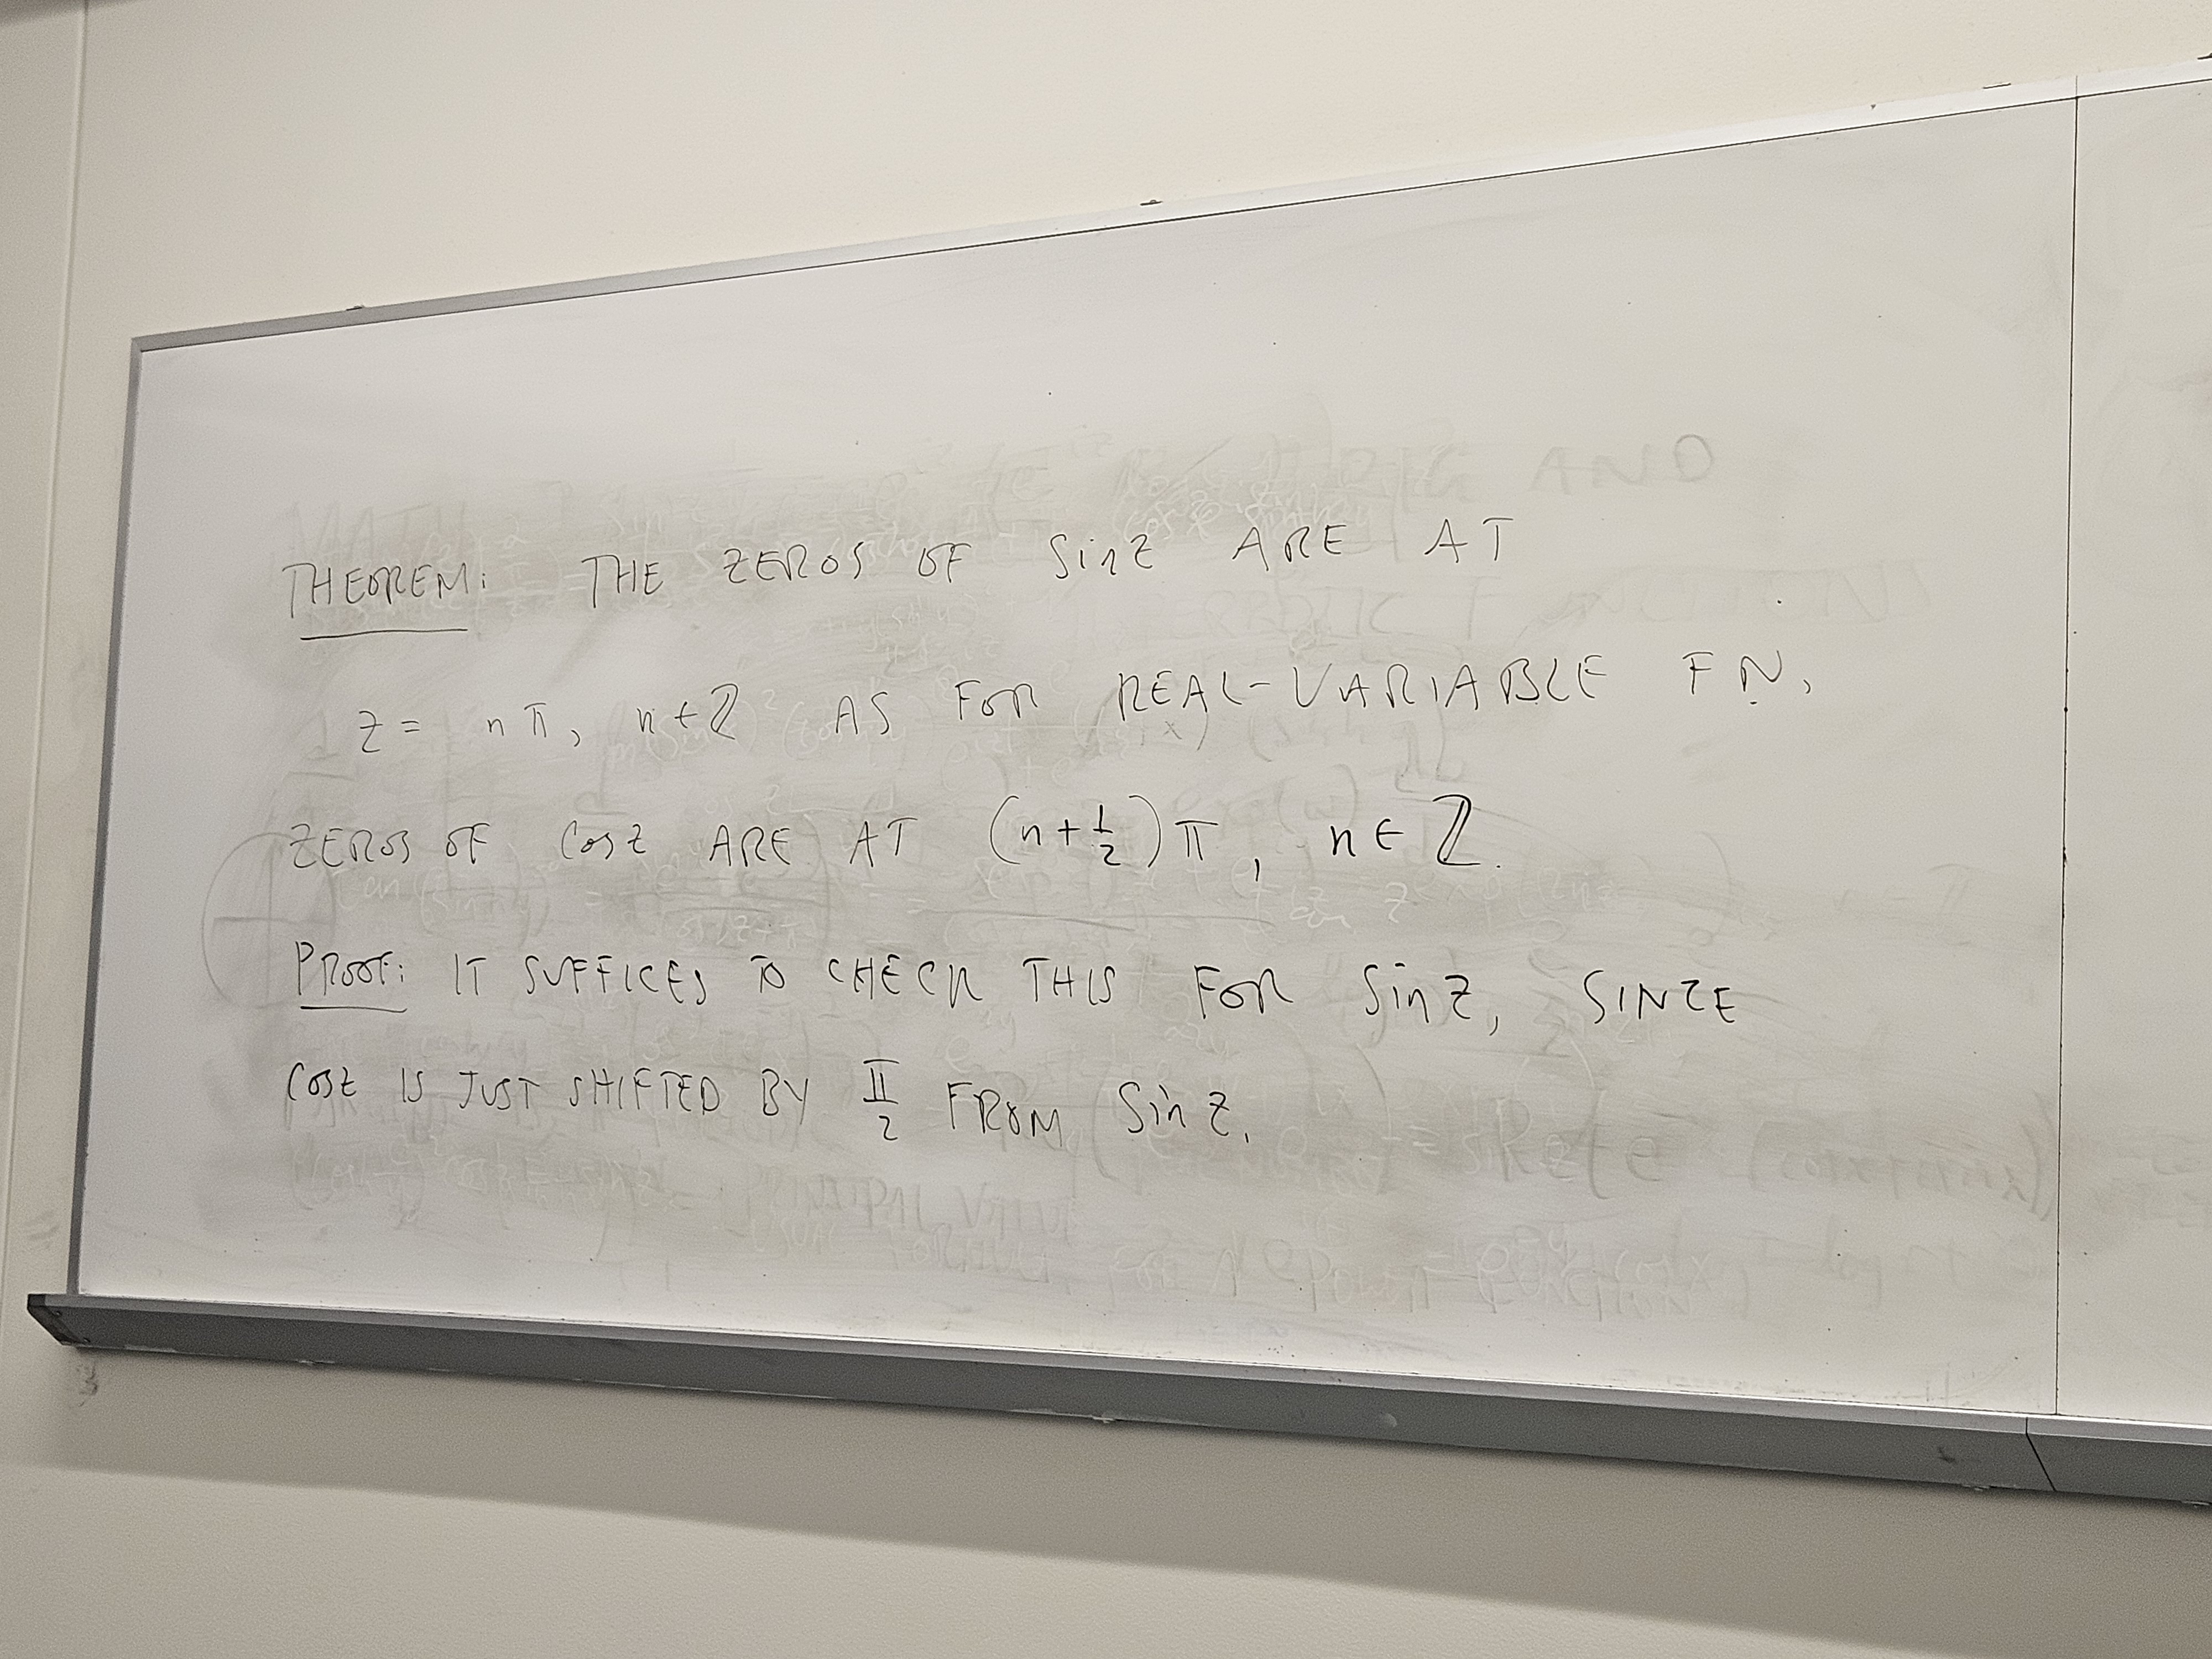 THEOREM: THE ZEROS OF sin z ARE AT
z = nπ, n∈ℤ AS FOR REAL-VARIABLE FN.
ZEROS OF cos z ARE AT (n+½)π, n∈ℤ.
PROOF: IT SUFFICES TO CHECK THIS FOR sin z, SINCE
cos z IS JUST SHIFTED BY π/2 FROM sin z.